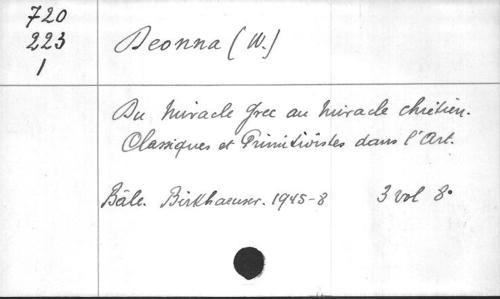 720
223
1
Deonna (W.)
Du Miracle grec au Miracle chrétien.
Classiques et Primitivistes dans l'Art.
Bâle. Birkhaeuser. 1945-8 3 vol 8°